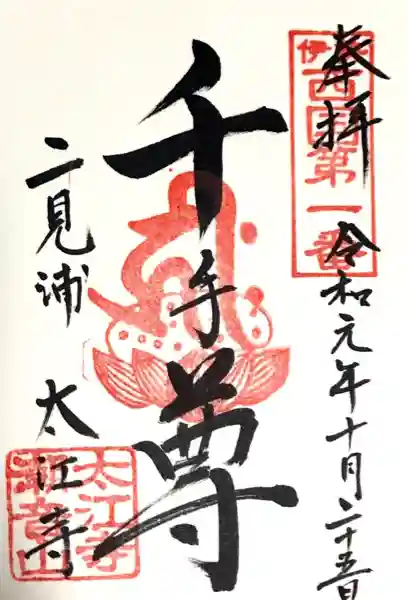 奉拝
令和元年十月二十五日
伊勢
西國第一番
千手尊
二見浦 太江寺
太江寺
潮音山